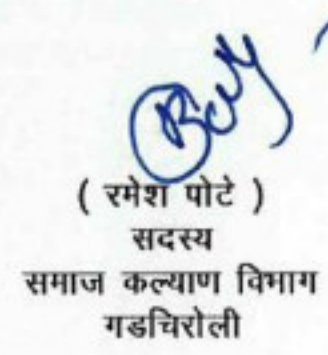 ( रमेश पोटे )
सदस्य
समाज कल्याण विभाग
गडचिरोली